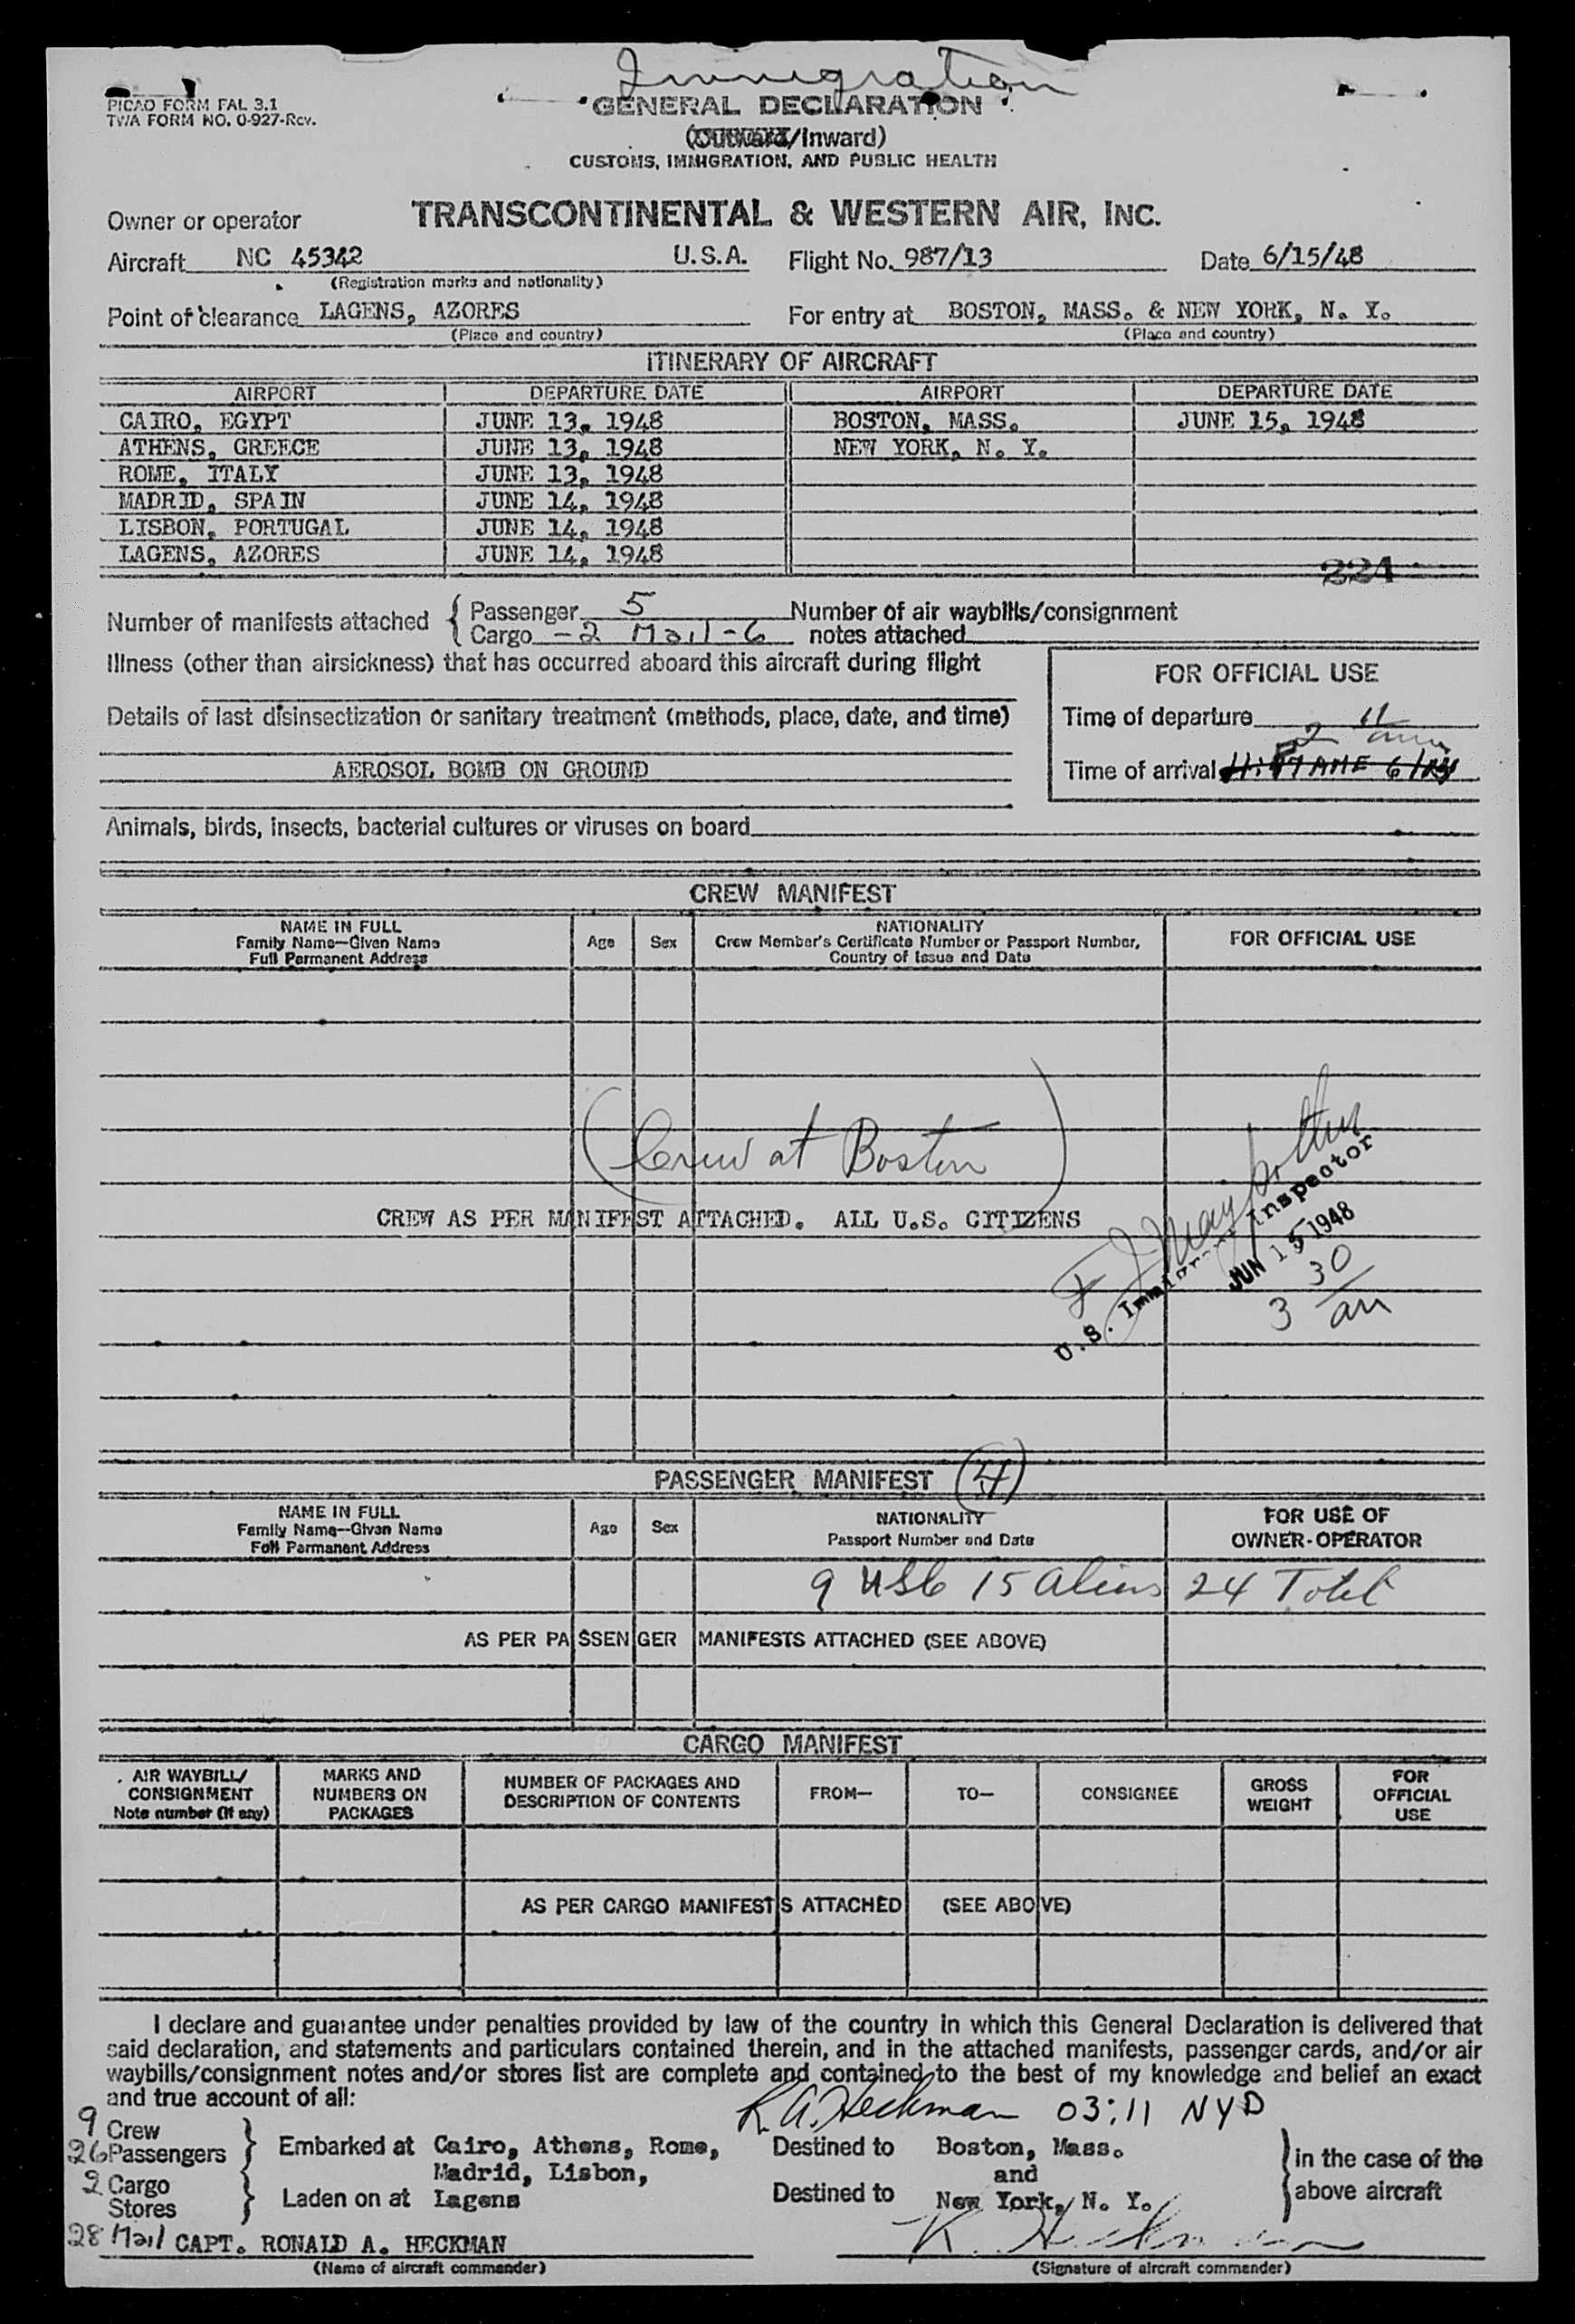 Immigration
PICAO FORM FAL 3.1
TWA FORM NO. 0-927-Rev.
GENERAL DECLARATION
(Outward/Inward)
CUSTOMS, IMMIGRATION, AND PUBLIC HEALTH
Owner or operator TRANSCONTINENTAL & WESTERN AIR, INC.
Aircraft NC 45342 U.S.A. Flight No. 987/13 Date 6/15/48
(Registration marks and nationality)
Point of clearance LAGENS, AZORES For entry at BOSTON, MASS. & NEW YORK, N. Y.
(Place and country) (Place and country)
ITINERARY OF AIRCRAFT
AIRPORT DEPARTURE DATE AIRPORT DEPARTURE DATE
CAIRO, EGYPT JUNE 13, 1948 BOSTON, MASS. JUNE 15, 1948
ATHENS, GREECE JUNE 13, 1948 NEW YORK, N. Y.
ROME, ITALY JUNE 13, 1948
MADRID, SPAIN JUNE 14, 1948
LISBON, PORTUGAL JUNE 14, 1948
LAGENS, AZORES JUNE 14, 1948
224
Number of manifests attached { Passenger 5 Number of air waybills/consignment
Cargo -2 Mail-6 notes attached
Illness (other than airsickness) that has occurred aboard this aircraft during flight
FOR OFFICIAL USE
Details of last disinsectization or sanitary treatment (methods, place, date, and time)
Time of departure
2 11 am
AEROSOL BOMB ON GROUND
Time of arrival
Animals, birds, insects, bacterial cultures or viruses on board
CREW MANIFEST
NAME IN FULL
Family Name—Given Name
Full Permanent Address
Age Sex
NATIONALITY
Crew Member's Certificate Number or Passport Number,
Country of Issue and Date
FOR OFFICIAL USE
(Crew at Boston)
CREW AS PER MANIFEST ATTACHED. ALL U.S. CITIZENS
U.S. Immigrant Inspector
JUN 15 1948
3 30 am
PASSENGER MANIFEST (4)
NAME IN FULL
Family Name—Given Name
Full Permanent Address
Age Sex
NATIONALITY
Passport Number and Date
FOR USE OF
OWNER-OPERATOR
9 USC 15 aliens 24 Total
AS PER PASSENGER MANIFESTS ATTACHED (SEE ABOVE)
CARGO MANIFEST
AIR WAYBILL/
CONSIGNMENT
Note number (if any)
MARKS AND
NUMBERS ON
PACKAGES
NUMBER OF PACKAGES AND
DESCRIPTION OF CONTENTS
FROM— TO— CONSIGNEE
GROSS
WEIGHT
FOR
OFFICIAL
USE
AS PER CARGO MANIFESTS ATTACHED (SEE ABOVE)
I declare and guarantee under penalties provided by law of the country in which this General Declaration is delivered that
said declaration, and statements and particulars contained therein, and in the attached manifests, passenger cards, and/or air
waybills/consignment notes and/or stores list are complete and contained to the best of my knowledge and belief an exact
and true account of all:
R. A. Heckman 03:11 NYD
9 Crew
26 Passengers
2 Cargo
Stores
28 Mail
Embarked at Cairo, Athens, Rome,
Madrid, Lisbon,
Laden on at Lagens
Destined to Boston, Mass.
and
Destined to New York, N. Y.
in the case of the
above aircraft
CAPT. RONALD A. HECKMAN R. Heckman
(Name of aircraft commander) (Signature of aircraft commander)